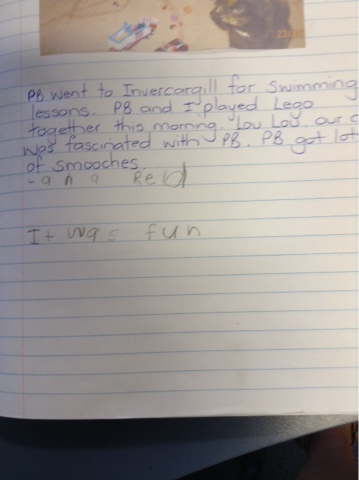 PB went to Invercargill for swimming
lessons. PB and I played Lego
together this morning. Lou Lou our c
was fascinated with PB. PB got lot
of smooches.
Reid
It was fun